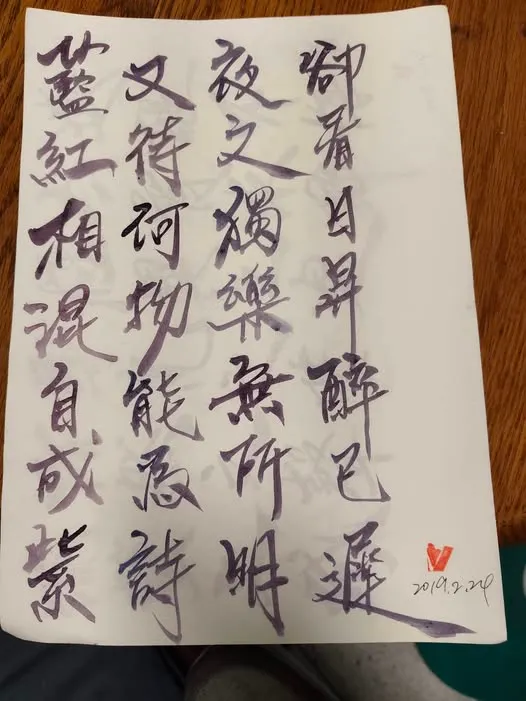 藍紅相混自成紫
又待何物能為詩
夜文獨樂無所明
卻看日昇醉已遲
2019.2.24